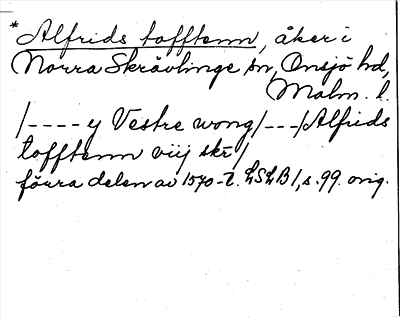 *Alfrids tofftenn, åker i
Norra Skrävlinge sn, Onsjö hd,
Malm. l.
/---- y Vestre wong/---/Alfrids
tofftenn viij skr/
förra delen av 1570-t. LSLB 1, s. 99. orig.